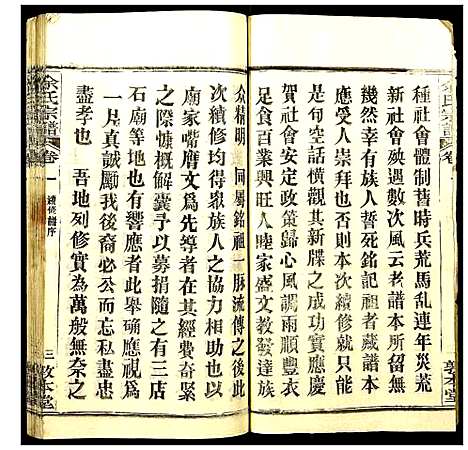 種社會體制昔時兵荒馬亂連年災荒
新社會殃遇數次風云老譜本所留無
幾然幸有族人誓死銘記祖者藏譜本
應受人崇拜也否則本次續修就只可
是一空話橫觀其新牒之成功應慶
賀社會安定政策歸心風調雨順豐衣
足食百興人旺睦家盛文教發達族
众精明一同屬銘祖一脉流傳之後此
次續修均得眾族人之協力相佐而
廟家嘴房文爲先等者其經費奇緊
之際慷概解囊予以募捐者有三店
石廟等地也有響應者此舉確應視爲
一片真誠勵我後裔必公而忘私盡忠
盡孝也　吾地列修實為萬般無奈之
余氏宗譜
卷一
續修譜序
三
敦本堂
余氏宗譜
卷
敦本堂